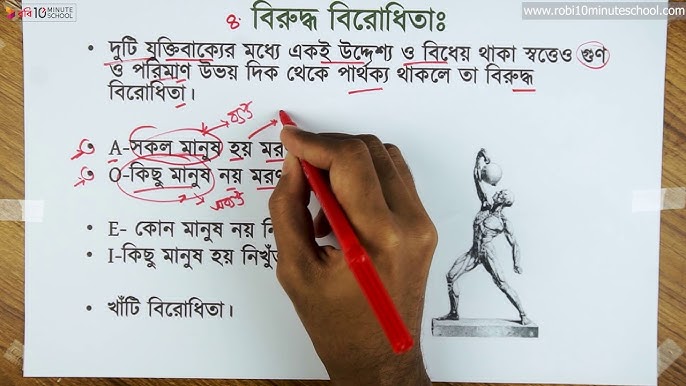 রবি 10 MINUTE SCHOOL
www.robi10minuteschool.com
৪. বিরুদ্ধ বিরোধিতাঃ
• দুটি যুক্তিবাক্যের মধ্যে একই উদ্দেশ্য ও বিধেয় থাকা স্বত্তেও গুণ
ও পরিমাণ উভয় দিক থেকে পার্থক্য থাকলে তা বিরুদ্ধ
বিরোধিতা।
A-সকল মানুষ হয়
O-কিছু মানুষ নয়
• E- কোন মানুষ নয়
• I-কিছু মানুষ হয়
• খাঁটি বিরোধিতা।